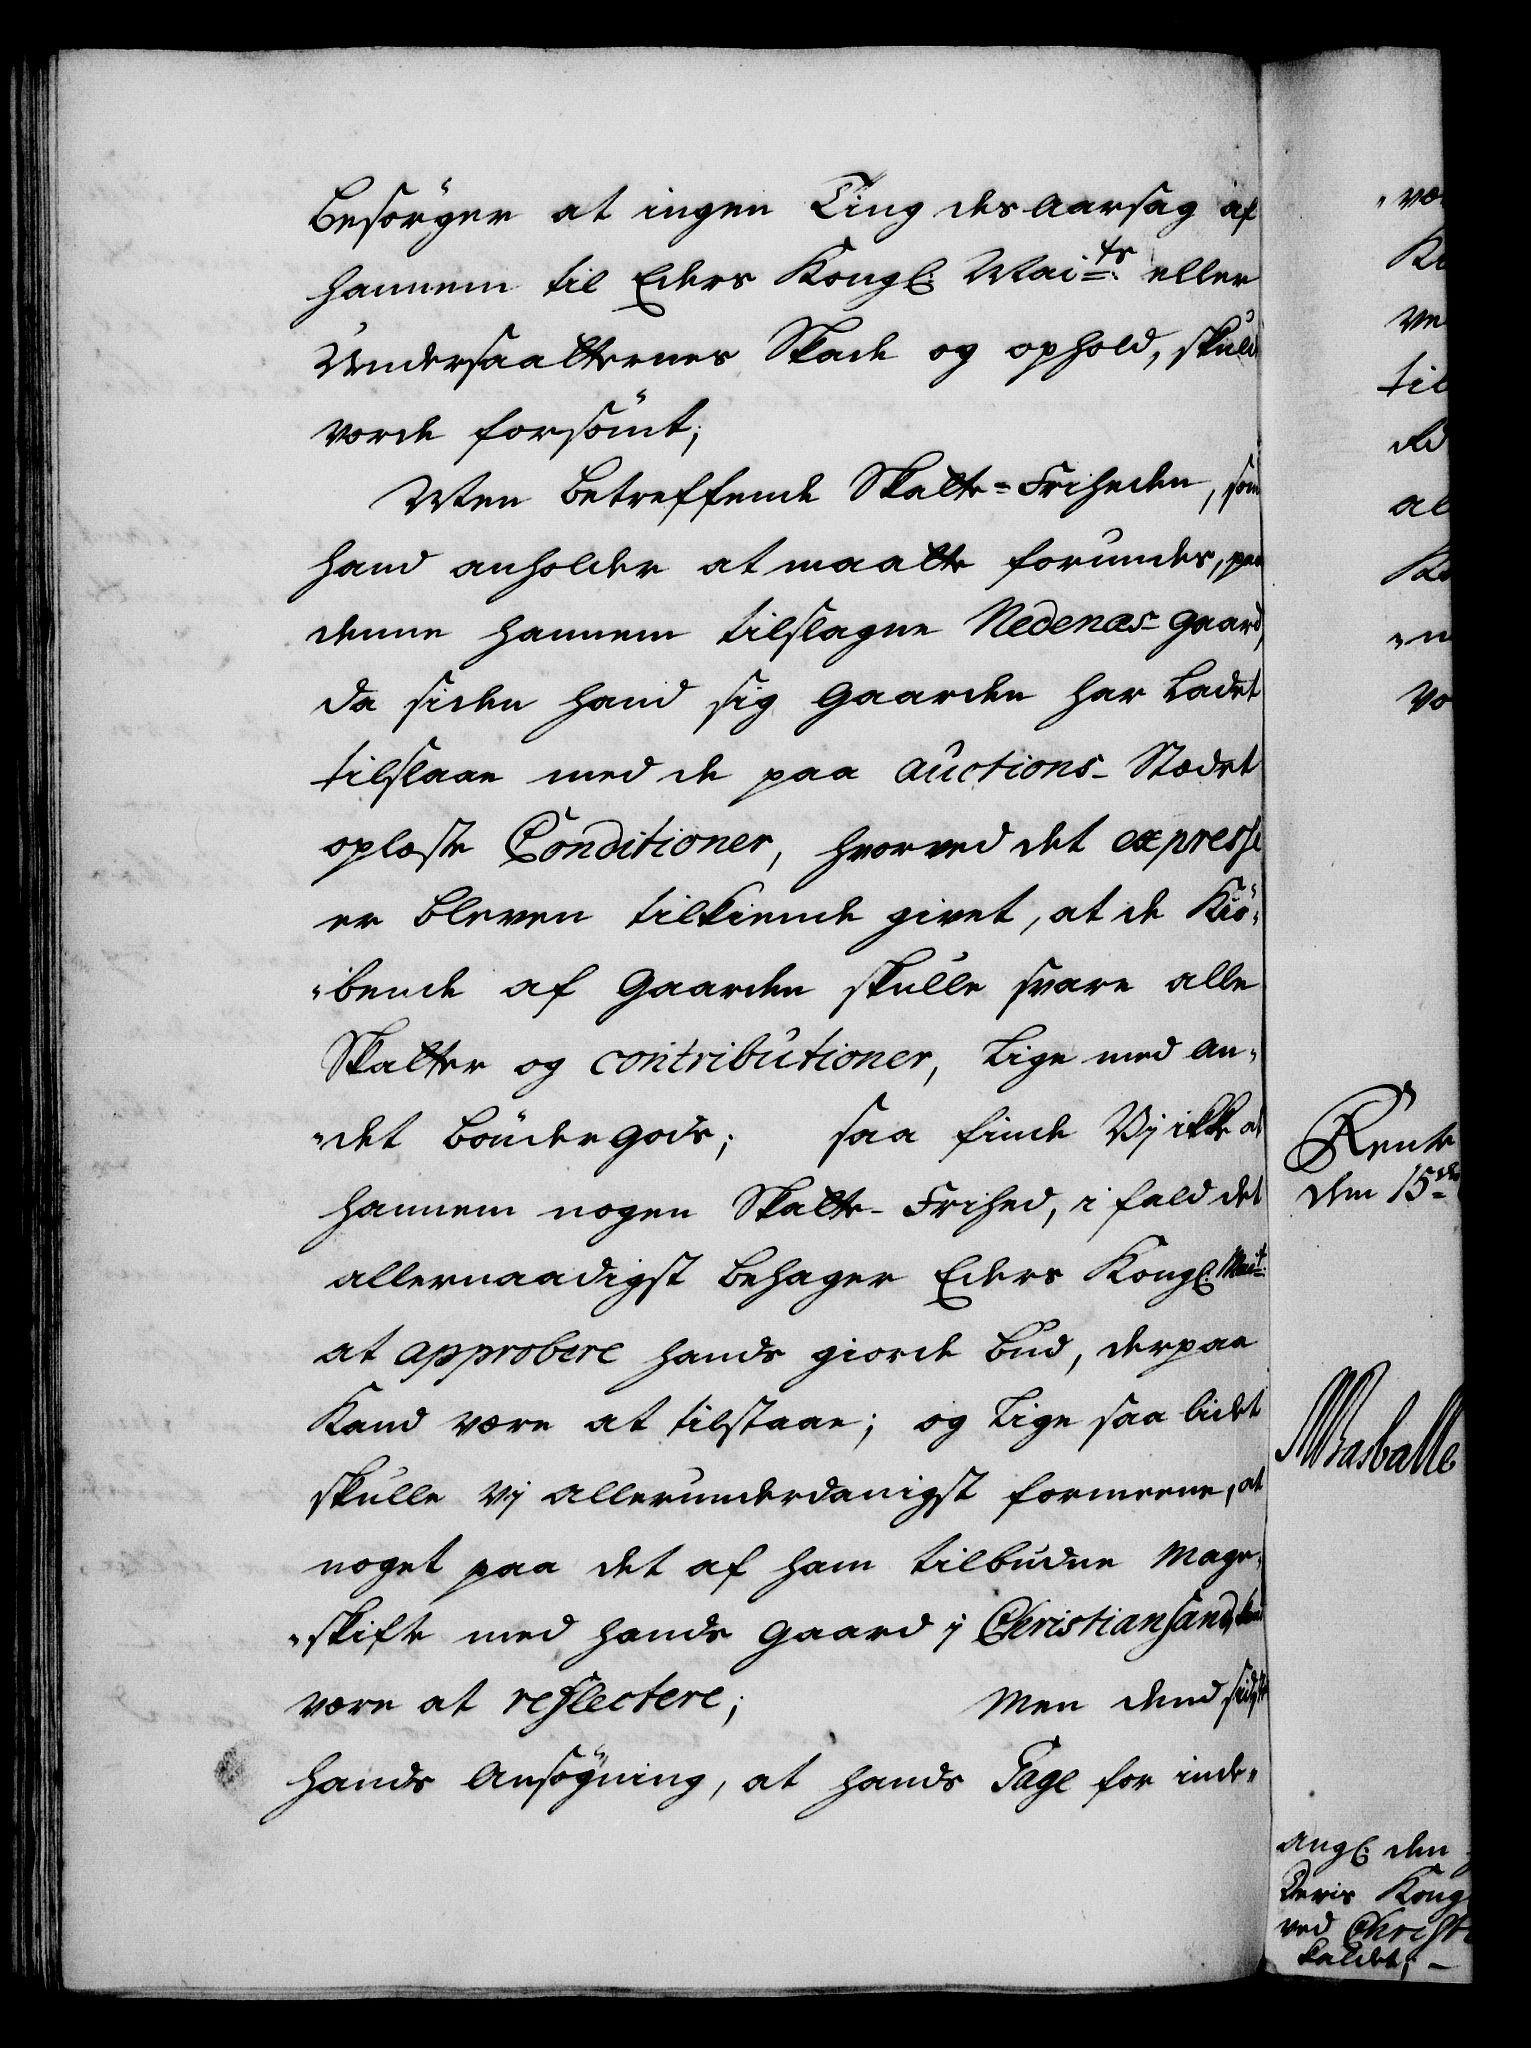 besörger at ingen Ting des aarsag af
hannem til Eders Kongl: Maits: eller
Undersaatternes Skade og ophold, skuld
vorde forsömt;
Men betreffende Skatte-Friheden, som
hand anholder at maatte forundes, paa
denne hannem tilslagne Nedenæs-gaard,
da siden hand sig gaarden har ladet
tilslaae med de paa auctions-Stædet
oplæste Conditioner, hvorved det expresse
er bleven tilkiende givet, at de Kiö„
„bende af gaarden skulle svare alle
Skatter og contributioner, lige med an„
„det böndergods; saa finde Vj ikke at
hannem nogen Skatte-Frihed, i fald det
allernaadigst behager Eders Kongl: Mait:
at approbere hands giorde bud, derpaa
kand være at tilstaae; og lige saa lidet
skulle vj allerunderdanigst formeene, at
noget paa det af ham tilbudne Mage„
„skifte med hands gaard j Christiansand kand
være at reflectere; Men dend sidste
hands Ansögning, at hands Gage for inde„
„væ
Ko
ve
til
al
Ko
„n
vo
Rente
den 15de
Basballe
Angl: den
Deris Kong
ved Christi
kaldet; -